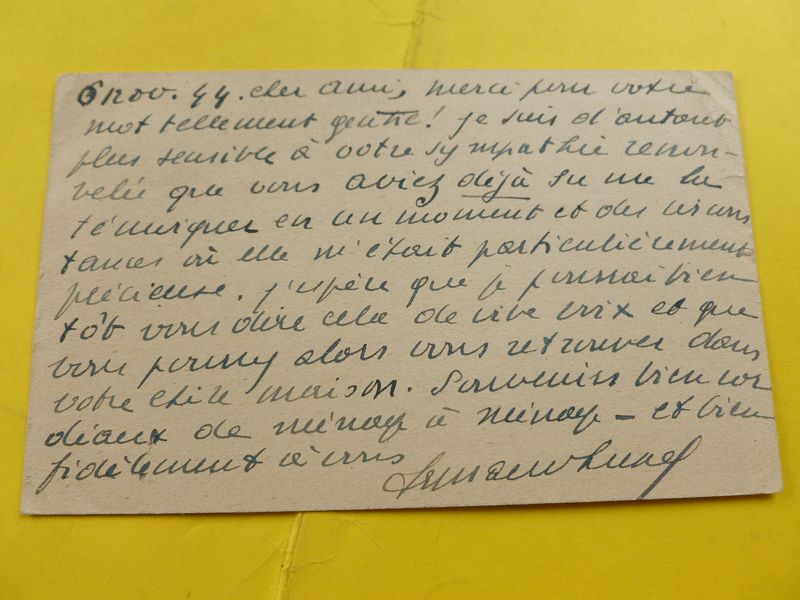 6 nov. 44. cher ami, merci pour votre
mot tellement gentil! je suis d'autant
plus sensible à votre sympathie renou-
velée que vous aviez déjà su me la
témoigner en un moment et des circons
tances où elle m'était particulièrement
précieuse. j'espère que je pourrai bien
tôt vous dire cela de vive voix et que
vous pourrez alors vous retrouver dans
votre chère maison. Souvenirs bien cor
diaux de ménage à ménage – et bien
fidèlement à vous